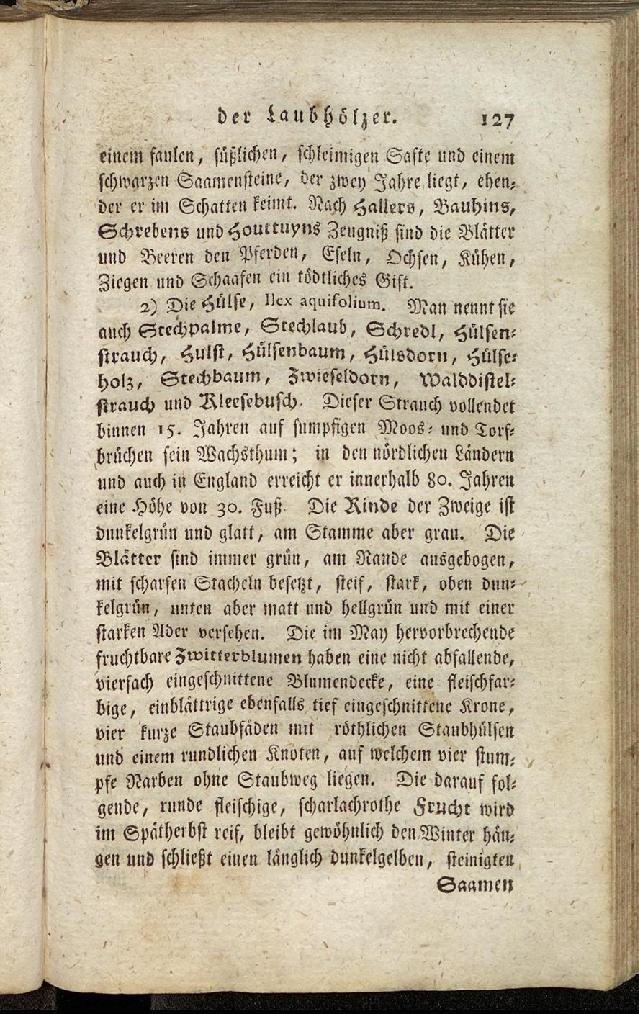 der Laubhölzer. 127
einem faulen, süßlichen, schleimigen Safte und einem
schwarzen Saamensteine, der zwey Jahre liegt, ehen-
der er im Schatten keimt. Nach Hallers, Bauhins,
Schrebens und Houttuyns Zeugniß sind die Blätter
und Beeren den Pferden, Eseln, Ochsen, Kühen,
Ziegen und Schaafen ein tödtliches Gift.
2) Die Hülse, Ilex aquifolium. Man nennt sie
auch Stechpalme, Stechlaub, Schredl, Hülsen-
strauch, Hulst, Hülsenbaum, Hülsdorn, Hülse-
holz, Stechbaum, Zwieseldorn, Walddistel-
strauch und Kleesebusch. Dieser Strauch vollendet
binnen 15. Jahren auf sumpfigen Moos- und Torf-
brüchen sein Wachsthum; in den nördlichen Ländern
und auch in England erreicht er innerhalb 80. Jahren
eine Höhe von 30. Fuß. Die Rinde der Zweige ist
dunkelgrün und glatt, am Stamme aber grau. Die
Blätter sind immer grün, am Rande ausgebogen,
mit scharfen Stacheln besetzt, steif, stark, oben dun-
kelgrün, unten aber matt und hellgrün und mit einer
starken Ader versehen. Die im May hervorbrechende
fruchtbare Zwitterblumen haben eine nicht abfallende,
vierfach eingeschnittene Blumendecke, eine fleischfar-
bige, einblättrige ebenfalls tief eingeschnittene Krone,
vier kurze Staubfäden mit röthlichen Staubhülsen
und einem rundlichen Knoten, auf welchem vier stum-
pfe Narben ohne Staubweg liegen. Die darauf fol-
gende, runde fleischige, scharlachrothe Frucht wird
im Spätherbst reif, bleibt gewöhnlich den Winter hän-
gen und schließt einen länglich dunkelgelben, steinigten
Saamen